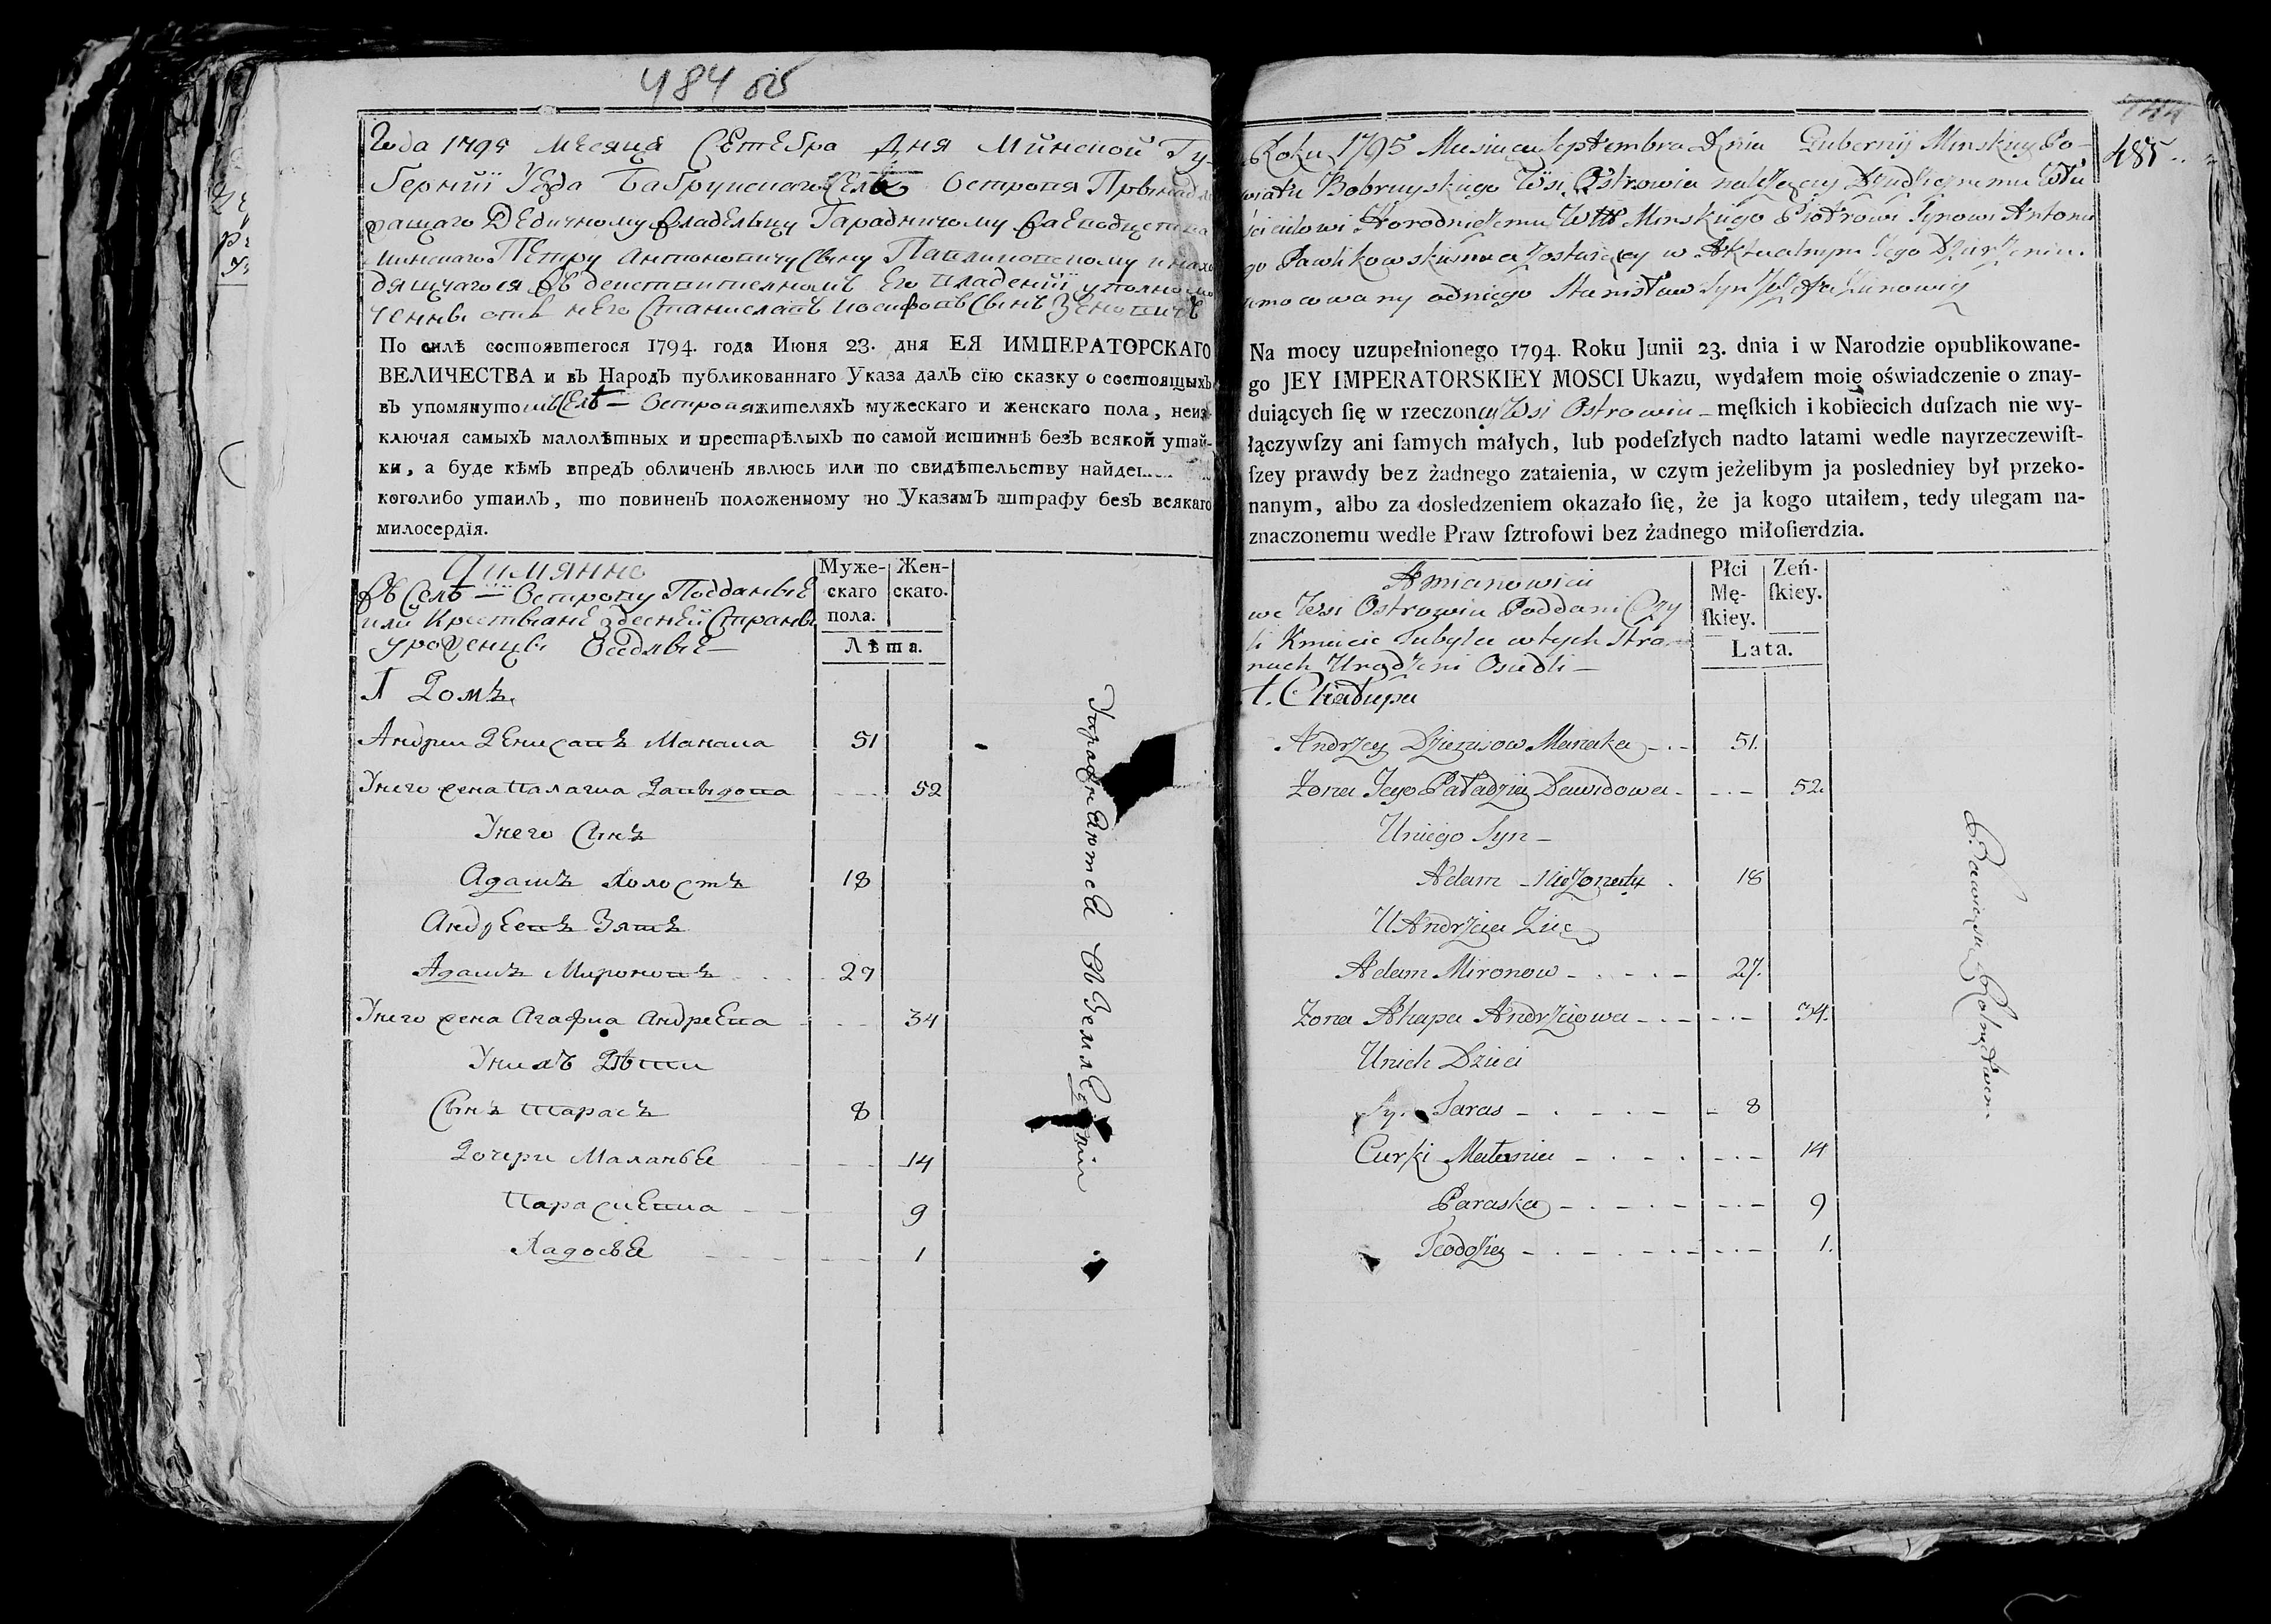 484 об
Года 1795 Месяца Сетебра Дня Минской Гу-
бернии Уезда Бабруискаго Селъ Острова Првинадле
жащаго Дедичному Владельцу Гарадничому Ваеводцства
Минскаго Петру Антоновичу Сыну Павликовскому инахо
дящчагося Въ деиствителномъ Его владении уполномо
ченны отъ него Станиславъ Иосифовъ Сынъ Зеновичъ
По силѣ состоявшегося 1794. года Июня 23. дня ЕЯ ИМПЕРАТОРСКАГО
ВЕЛИЧЕСТВА и въ Народъ публикованнаго Указа далъ сїю сказку о состоящыхъ
въ упомянутомъ Селѣ — Острова жителяхъ мужескаго и женскаго пола, неиз-
ключая самыхъ малолѣтных и престарѣлыхъ по самой истиннѣ безъ всякой утай-
ки, а буде кѣмъ впредъ обличенъ явлюсь или по свидѣтельству найден
коголибо утаилъ, то повиненъ положенному по Указамъ штрафу безъ всякаго
милосердїя.
Аимянно
Въ Селѣ — Острову Подданые
или Крестьяне здесней Страны
уроженцы Оседлые —
Муже-
скаго
пола.
Жен-
скаго.
Лѣта.
1 Домъ
Андрии Денисавъ Манака 51
Унего жена Палагиа Давыдова 52
Унего Синъ
Адамъ Холостъ 18
Андреевъ Зятъ
Адамъ Мироновъ 27
Унего жена Агафиа Андреева 34
Унихъ Дѣти
Сынъ Тарасъ 8
Дочери Маланья 14
Параскевиа 9
Хадосья 1
Упражняются Въ Земледелии
485
Roku 1795 Miesiąca Septembra Dnia Gubernij Minskiey Po-
wiatu Bobruyskiego Wsi Ostrowia należącey Dziedzicznemu Wła
ścicielowi Horodniczemu Wtt Minskiego Piotrowi Synowi Antonie
go Pawlikowskiemu a zostaiącey w Aktualnym Jego Dzierżeniu
umocowany odniego Stanisław Syn Jozefa Zienowicz
Na mocy uzupełnionego 1794. Roku Junii 23. dnia i w Narodzie opublikowane-
go JEY IMPERATORSKIEY MOSCI Ukazu, wydałem moię oświadczenie o znay-
duiących ſię w rzeczoney Wsi Ostrowiu — męſkich i kobiecich duſzach nie wy-
łączywſzy ani ſamych małych, lub podeſzłych nadto latami wedle nayrzeczewiſt-
ſzey prawdy bez żadnego zataienia, w czym jeżelibym ja posledniey był przeko-
nanym, albo za dosledzeniem okazało ſię, że ja kogo utaiłem, tedy ulegam na-
znaczonemu wedle Praw ſztrofowi bez żadnego miłoſierdzia.
A mianowicie
we Wsi Ostrowiu Poddani Czy
li Kmiecie Tubylce w tych Stro
nach Urodzeni Osiedli —
Płci
Mę-
ſkiey.
Żeń-
ſkiey.
Lata.
1. Chałupa
Andrzey Dzienisow Manaka 51.
Żona Jego Paładzia Dawidowa 52.
Uniego Syn —
Adam Nieżonaty 18
U Andrzeia Zięć
Adam Mironow 27.
Żona Ahapa Andrzeiowa 34.
Unich Dzieci
Sy. Taras 8
Curki Małania 14
Paraska 9
Teodozia 1.